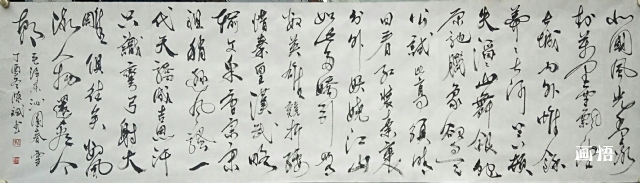 北国风光千里
冰封万里雪飘望
长城内外惟余
莽莽大河上下顿
失滔滔山舞银蛇
原驰腊象欲与天
公试比高须晴
日看红装素裹
分外妖娆江山
如此多娇引无
数英雄竞折腰
惜秦皇汉武略
输文采唐宗宋
祖稍逊风骚一
代天骄成吉思汗
只识弯弓射大
雕俱往矣数风
流人物还看今
朝
毛泽东沁园春雪
丁酉
画悟